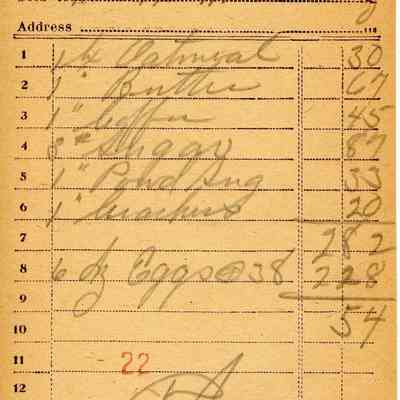 Address
1 1 lb Oatmeal 30
2 1 " Butter 67
3 1 " Coffee 45
4 8 # Suggar 87
5 1 " Powd Sug 33
6 1 " Crackers 20
7 282
8 6 dz Eggs @ 38 228
9
54
10
11 22
12